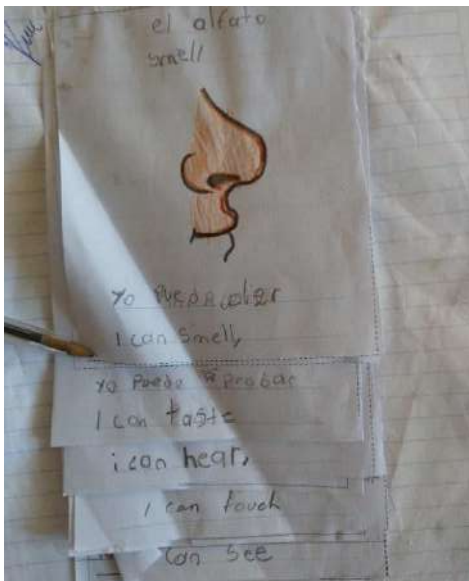 el alfato
smell
Yo puedo oler
I can smell,
Yo Puedo Probar
I can taste
i can hear,
I can touch
Can See